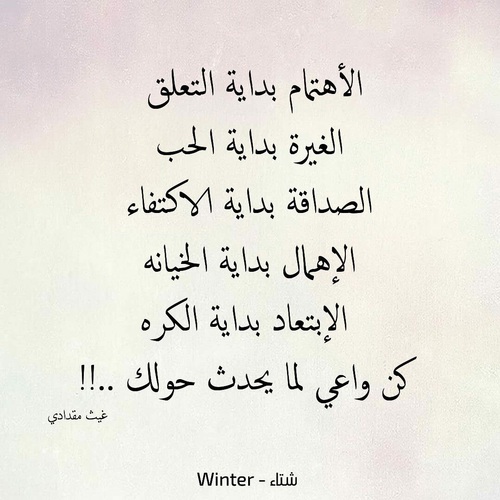 الأهتمام بداية التعلق
الغيرة بداية الحب
الصداقة بداية الاكتفاء
الإهمال بداية الخيانه
الإبتعاد بداية الكره
كن واعي لما يحدث حولك ..!!
غيث مقدادي
شتاء - Winter